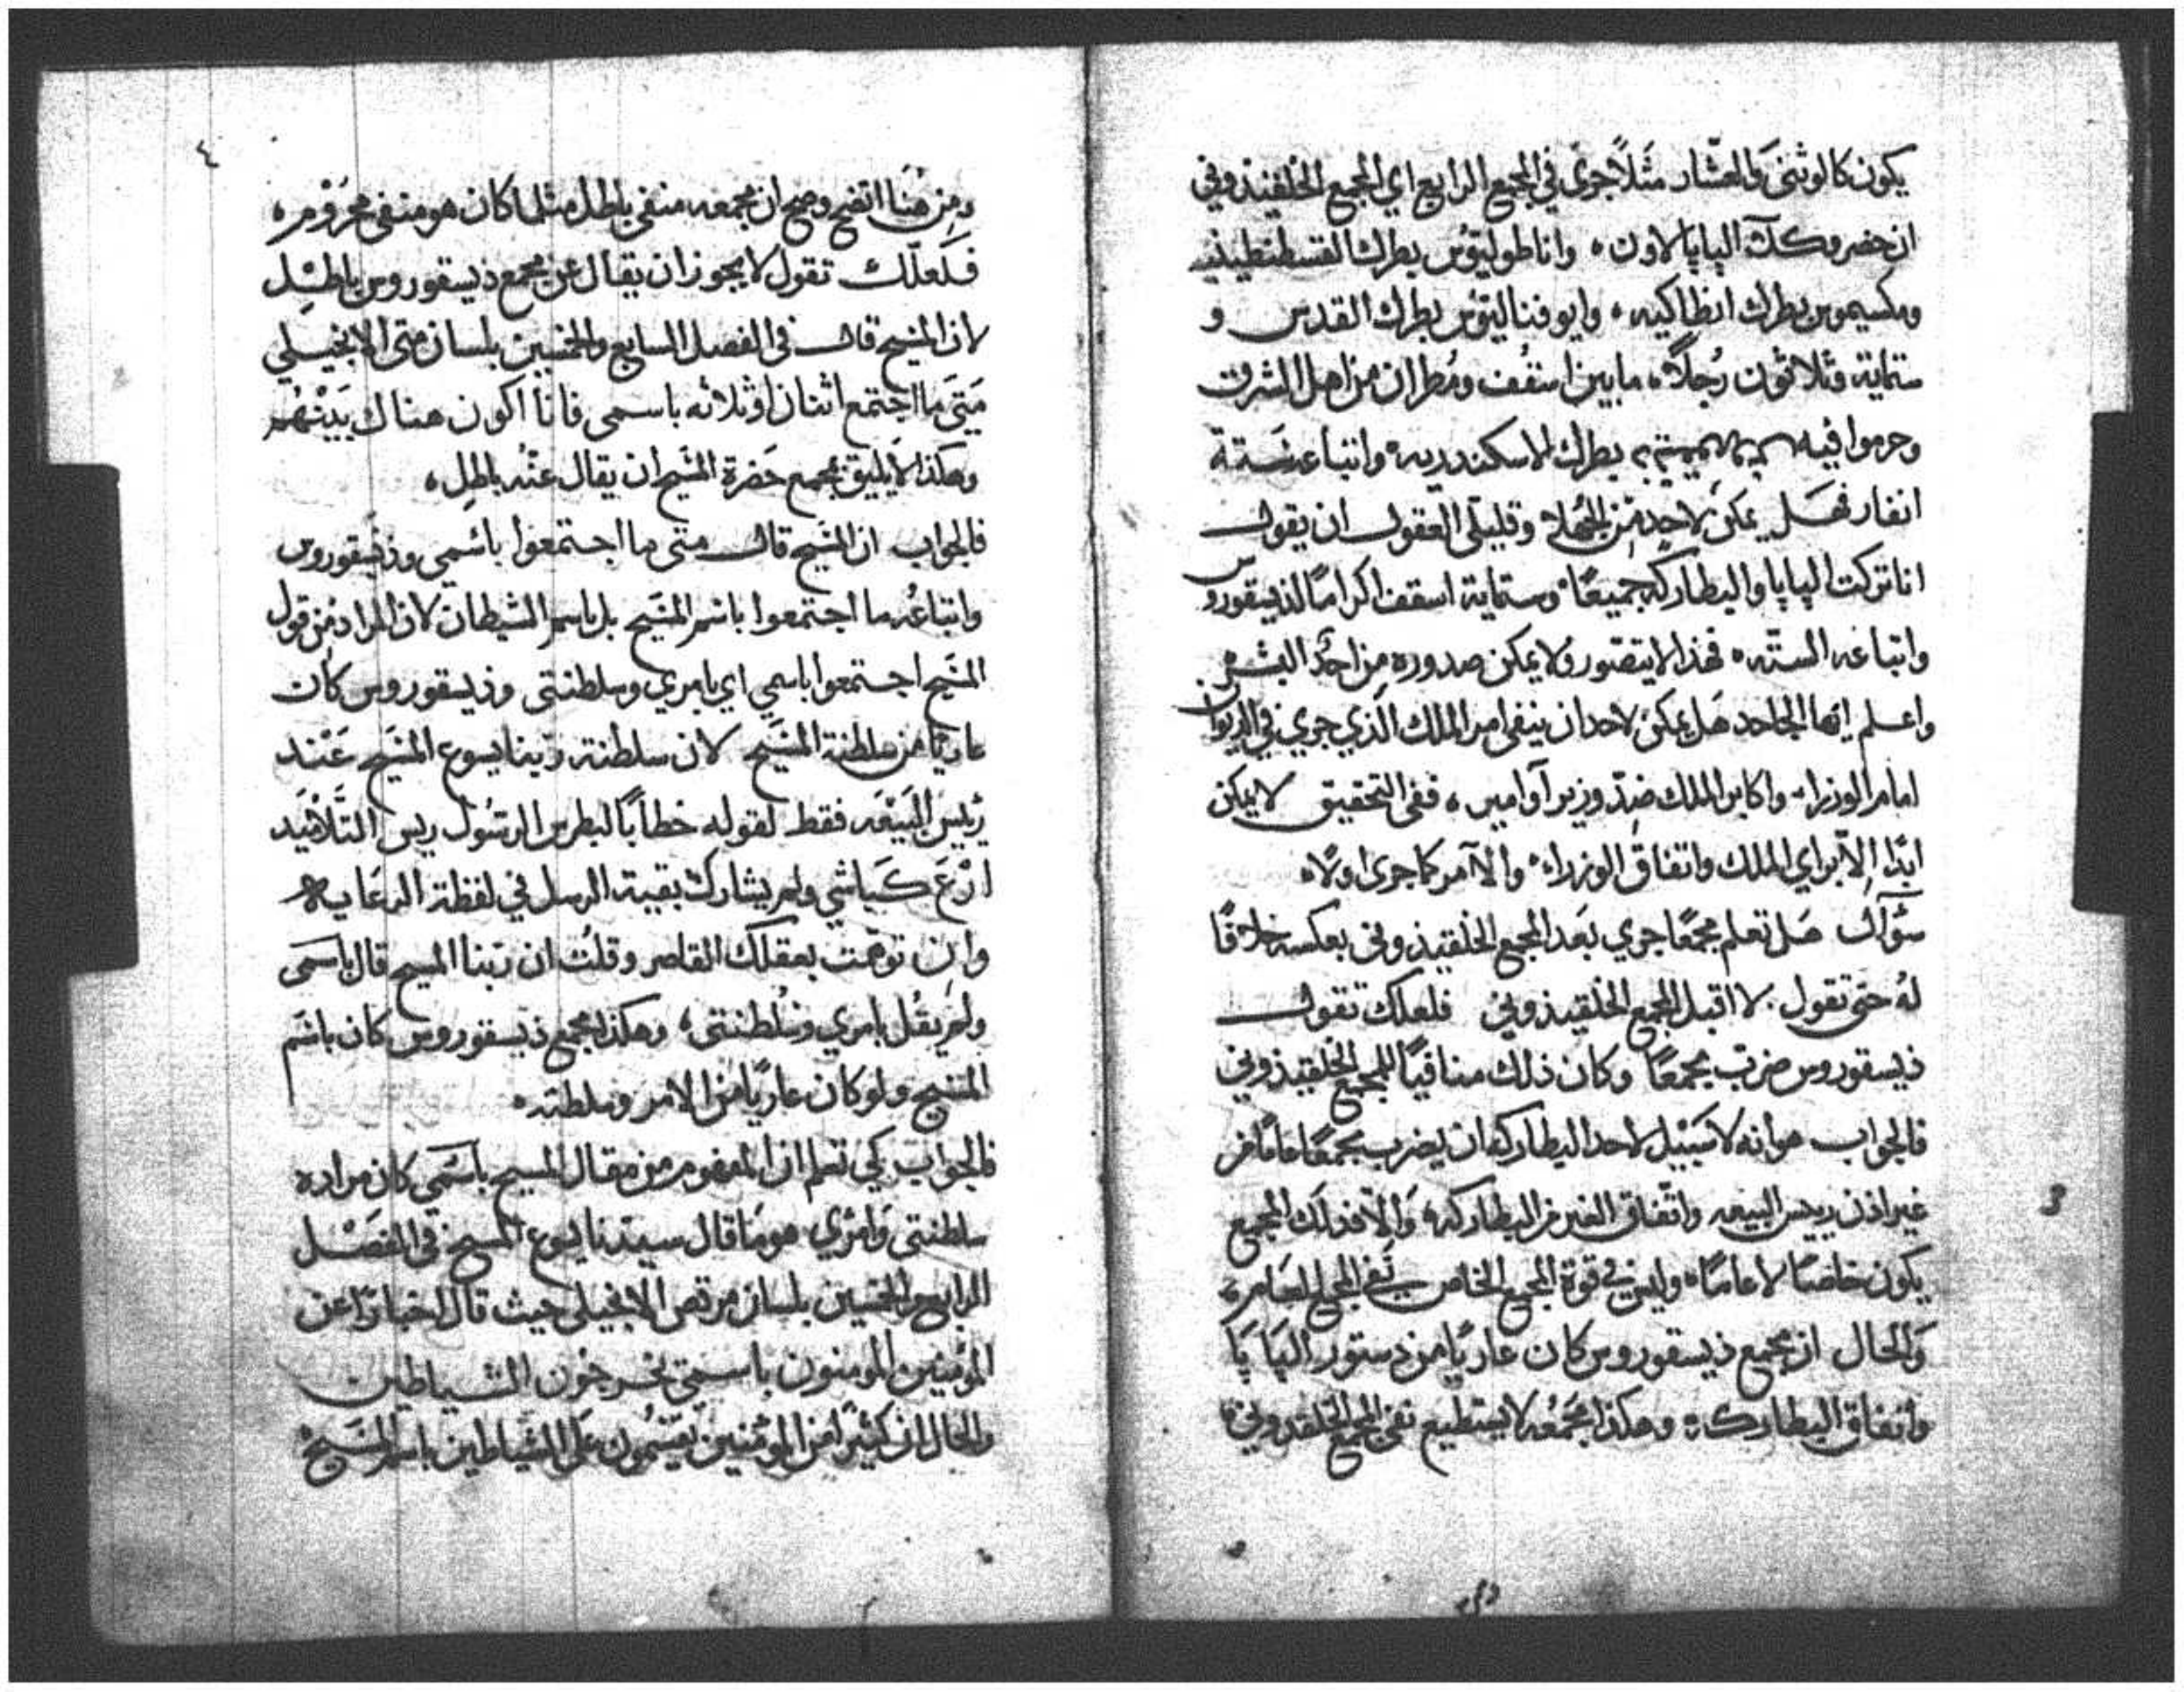 يكون كالوثني والعشار مثلًا جرى في المجمع الرابع اي المجمع الخلقيذوني
ان حضر وكلآ البابا لاون ٠ واناطوليئوس بطرك القسطنطينيه
ومكسيموس بطرك انطاكيه ٠ وايوفناليئوس بطرك القدس و
ستماية وثلاثون رجلًا ٠ ما بين اسقف ومطران من اهل الشرق
وحرموا فيه بطرك الاسكندريه ٠ واتباعه ستة
انفار فهل يمكن لاحد من الجهلا وقليلي العقول ان يقول
انا تركت البابا والبطاركه جميعًا ٠ وستماية اسقف اكرامًا لذيسقوروس
واتباعه الستّه ٠ فهذا لا يتصّور ولا يمكن صدوره من احد البشر ٠
واعلم ايها الجاحد هل يمكن لاحد ان ينفي امر الملك الذي جرى في الديوان
امام الوزرا ٠ واكابر الملك ضدّ وزير آو امير ٠ ففي التحقيق لا يمكن
ابدًا إلاّ براي الملك واتفاق الوزراء ٠ والا آمر كما جرى اولًا ٠
سوآل هل تعلم مجمعًا جرى بعد المجمع الخلقيذوني بعكسه خلافًا
له حتى تقول ٠ لا اقبل المجمع الخلقيذوني فلعلك تقول
ذيسقوروس ضرب مجمعًا وكان ذلك منافيًا للمجمع الخلقيذوني
فالجواب هو انه لا سبيل لاحد البطاركه ان يضرب مجمعًا عامًا من
غير اذن رييس البيعه واتّفاق الغير من البطاركه ٠ وَالاّ فذلك المجمع
يكون خاصًا لا عامًا ٠ وليس في قوة المجمع الخاص نفي المجمع العام ٠
وَالحال ان مجمع ذيسقوروس كان عاريًا من دستور البَابَا
واتفاق البطاركه ٠ وهكذا مجمعُه لا يستطيع نفي المجمع الخلقدوني ٠
3
٤
ومن هُنَا اتضح وصح ان مجمعه منفي باطل مثلما كان هو منفي محرُوم ٠
فَلَعلّك تقول لا يجوز ان يقال عن مجمع ذيسقوروس باطل
لان المسيح قال في الفصل السابع والخمسين بلسان متى الانجيلي
مَتَى ما اجتمع اثنان او ثلاثه باسمي فانا اكون هناك بَينهُم
وهكذا لا يليق بمجمع حَضرة المسيح ان يقال عنْه باطل ٠
فالجواب ان المسيح قال متى ما اجتمعوا باسمي وذيسقوروس
واتباعُه ما اجتمعوا باسم المسيح بل باسم الشيطان لان المراد من قول
المسَيح اجتمعوا باسمي اي بامري وسلطنتي وذيسقوروس كان
عاريًا من سلطنة المسَيح لان سلطنة ربنا يسوع المسَيح عَنْد
رئيس البيَعَه فقط لقوله خطابًا لبطرس الرسُول ريس التَّلامْيد
ارْعَ كبَاشي ولم يشارك بقية الرسل في لفظة الرعَايه
وان توهّمت بعقلك القاصر وقلتُ ان ربّنا المسيح قال باسمَي
ولم يقُل بامري وسُلطنتي ٠ وهكذا مجمع ذيسقوروس كان باسْم
المسَيح ولو كان عاريًا من الامر وسلطته ٠
فالجوَاب كي تعلم ان المفهوم من مقال المسيح باسْمي كان مراده
سلطنتي وَامْري هو مَا قال سيدّنا يسوع المسيح في الفصْل
الرابع والخمسين بلسان مرقس الانجيلي حيث قال اخبارًا عن
المؤمنين المومنون باسمي يخرجون الشياطين
والحال ان كثيرًا من المؤمنين يقسْمُون عَلَى الشياطين باسم المسَيح ٠